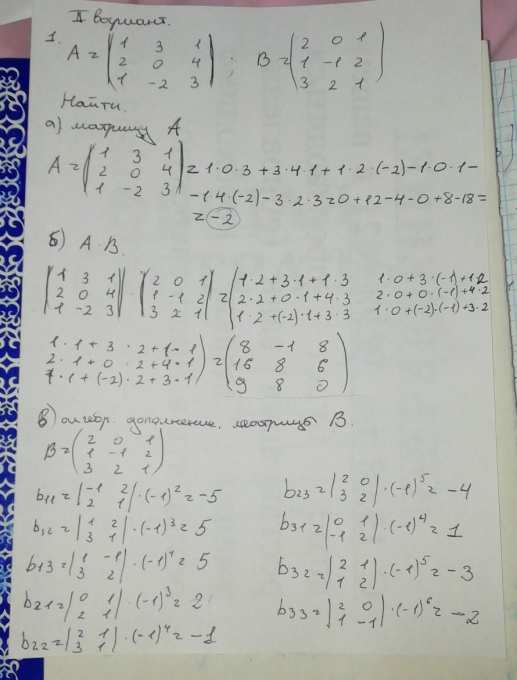 II вариант.
1. A = (1 3 1; 2 0 4; 1 -2 3); B = (2 0 1; 1 -1 2; 3 2 1)
Найти.
а) матрицу A
A = (1 3 1; 2 0 4; 1 -2 3) = 1·0·3 + 3·4·1 + 1·2·(-2) - 1·0·1 -
- 1·4·(-2) - 3·2·3 = 0 + 12 - 4 - 0 + 8 - 18 =
= -2
б) A·B.
|1 3 1; 2 0 4; 1 -2 3| · (2 0 1; 1 -1 2; 3 2 1) = (1·2+3·1+1·3 1·0+3·(-1)+1·2
2·2+0·1+4·3 2·0+0·(-1)+4·2
1·2+(-2)·1+3·3 1·0+(-2)·(-1)+3·2
1·1+3·2+1·1
2·1+0·2+4·1
1·1+(-2)·2+3·1) = (8 -1 8; 16 8 6; 9 8 0)
в) алгебр. дополнение, матрицы B.
B = (2 0 1; 1 -1 2; 3 2 1)
b11 = |-1 2; 2 1|·(-1)² = -5
b12 = |1 2; 3 1|·(-1)³ = 5
b13 = |1 -1; 3 2|·(-1)⁴ = 5
b21 = |0 1; 2 1|·(-1)³ = 2
b22 = |2 1; 3 1|·(-1)⁴ = -1
b23 = |2 0; 3 2|·(-1)⁵ = -4
b31 = |0 1; -1 2|·(-1)⁴ = 1
b32 = |2 1; 1 2|·(-1)⁵ = -3
b33 = |2 0; 1 -1|·(-1)⁶ = -2